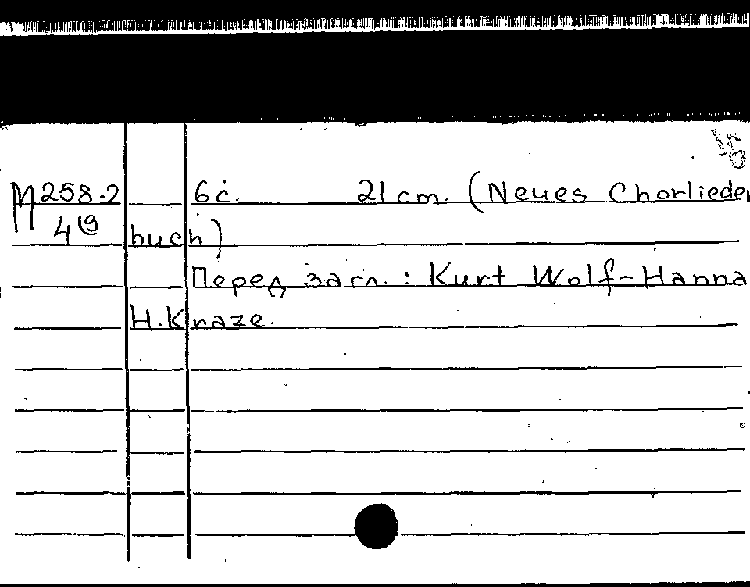 М 258-2 6 с. 21 cm. (Neues Chorlieder
4 buch)
Перед загл.: Kurt Wolf-Hanna
H. Kraze.